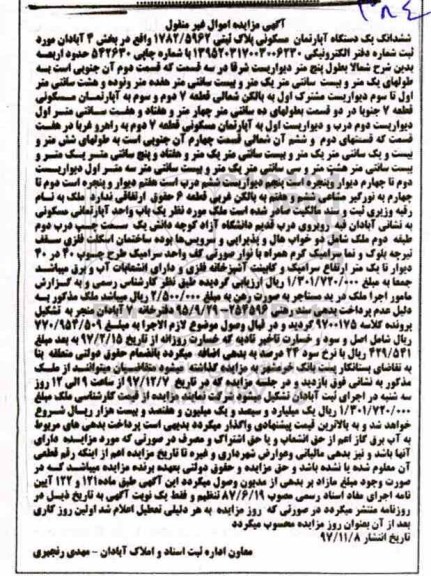 ۳۸۰۴
آگهی مزایده اموال غیر منقول
ششدانگ یک دستگاه آپارتمان مسکونی پلاک ثبتی ۱۷۸۲/۵۹۶۲ واقع در بخش ۴ آبادان مورد
ثبت شماره دفتر الکترونیکی ۱۳۹۵۲۰۳۱۷۰۰۳۰۰۶۲۳۰ با شماره چاپی ۵۴۲۶۳۰ حدود اربعه
بدین شرح شمالا بطول پنج متر دیواریست شرقا در سه قسمت که قسمت دوم آن جنوبی است به
طولهای یک متر و بیست سانتی متر یک متر و بیست سانتی متر هفده متر ونوده و هشت سانتی متر
اول تا سوم دیواریست مشترک اول به بالکن شمالی قطعه ۷ دوم و سوم به آپارتمان مسکونی
قطعه ۷ جنوبا در دو قسمت بطولهای ده سانتی متر چهار متر و هفتاد و هفت سانتی متر اول
دیواریست دوم درب و دیواریست اول به آپارتمان مسکونی قطعه ۷ دوم به راهرو غربا در هفت
قسمت که قسمتهای دوم و ششم آن شمالی قسمت چهارم آن جنوبی است به طولهای شش متر و
بیست و یک سانتی متر یک متر و بیست سانتی متر یک متر و هفتاد و پنج سانتی متر یک متر و
بیست سانتی متر متر و سی سانتی متر یک متر و بیست سانتی متر سه متر اول دیواریست
دوم تا چهارم دیوار وپنجره است پنجم دیواریست ششم درب است هفتم دیوار و پنجره است دوم تا
چهارم به نورگیر مشاعی ششم هفتم به بالکن غربی قطعه ۶ حقوق ارتفاقی ندارد ملک به نام
رقیه وزیری ثبت و سند مالکیت صادر شده است ملک مورد نظر یک باب واحد آپارتمانی مسکونی
به نشانی آبادان فیه روبروی درب قدیم دانشگاه آزاد کوچه دانش یک سمت چپ درب دوم
طبقه دوم ملک شامل دو خواب هال و پذیرایی و سرویس‌ها بوده ساختمان اسکلت فلزی سقف
تیرچه بلوک و نما سرامیک گرم همراه با نوار صورتی کف واحد سرامیک طرح چسوب ۴۰ در ۴۰
دیوار تا یک متر ارتفاع سرامیک و کابینت آشپزخانه فلزی و دارای انشعابات آب و برق میباشد
جمعا به مبلغ ۱/۳۰۱/۷۲۰/۰۰۰ ریال ارزیابی گردیده طبق نظر کارشناس رسمی و به گزارش
مامور اجرا ملک در ید مستاجر به صورت رهن به مبلغ ۲/۵۰۰/۰۰۰ ریال میباشد ملک مذکور به
دلیل عدم پرداخت بدهی سند رهنی ۱۵۲۵۹۶-۱۵/۹/۲۱ دفترخانه ۷ آبادان منجر به تشکیل
پرونده کلاسه ۹۷۰۰۱۷۵ گردید و در قبال وصول موضوع لازم الاجرا به مبلغ ۷۷۰/۹۵۴/۵۰۹
ریال شامل اصل و سود و خسارت تاخیر تادیه که خسارت روزانه از تاریخ ۹۷/۲/۱۵ به بعد مبلغ
۴۲۹/۵۴۱ ریال با نرخ سود ۲۴ درصد به بدهی اضافه میگردد بانضمام حقوق دولتی متعلقه بنا
به تقاضای بستانکار پست بانک خوزستان به مزایده گذاشته میشود متقاضیان میتوانند از ملک
مذکور به نشانی فوق بازدید و در جلسه مزایده که در تاریخ ۹۷/۱۲/۷ از ساعت ۹ الی ۱۲ روز
سه شنبه در اجرای ثبت آبادان تشکیل میشود شرکت نمایند مزایده از قیمت کارشناسی ملک مبلغ
۱/۳۰۱/۷۲۰/۰۰۰ ریال یک میلیارد و سیصد و یک میلیون و هفتصد و بیست هزار ریال شروع
خواهد شد و به بالاترین قیمت پیشنهادی واگذار میگردد بدیهی است پرداخت بدهی های مربوط
به آب برق گاز اعم از حق انشعاب و یا حق اشتراک و مصرف در صورتی که مورد مزایده دارای
آنها باشد و نیز بدهی مالیاتی وعوارض شهرداری و غیره تا تاریخ مزایده اعم از اینکه رقم قطعی
آن معلوم شده یا نشده باشد و حق مزایده و حقوق دولتی بعهده برنده مزایده میباشد که در
صورت وجود مبلغ مازاد بر بدهی از مدیون وصول میگردد این آگهی طبق ماده۱۲۱ و ۱۲۲ آیین
نامه اجرای مفاد اسناد رسمی مصوب ۸۷/۶/۱۹ تنظیم و فقط یک نوبت آگهی به تاریخ ذیل در
روزنامه منتشر میگردد در صورتی که روز مزایده به هر دلیلی تعطیل اعلام شد اولین روز کاری
بعد از آن بعنوان روز مزایده محسوب میگردد
تاریخ انتشار ۹۷/۱۱/۸
معاون اداره ثبت اسناد و املاک آبادان - مهدی رنجبری